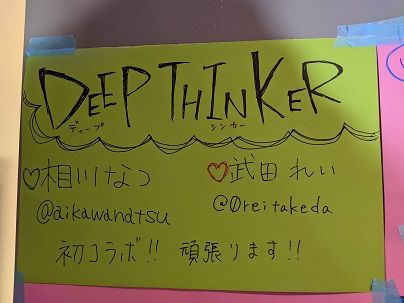 DEEP THINKER
ディープ シンカー
♡相川なつ ♡武田れい
@aikawanatsu @0reitakeda
初コラボ!! 頑張ります!!